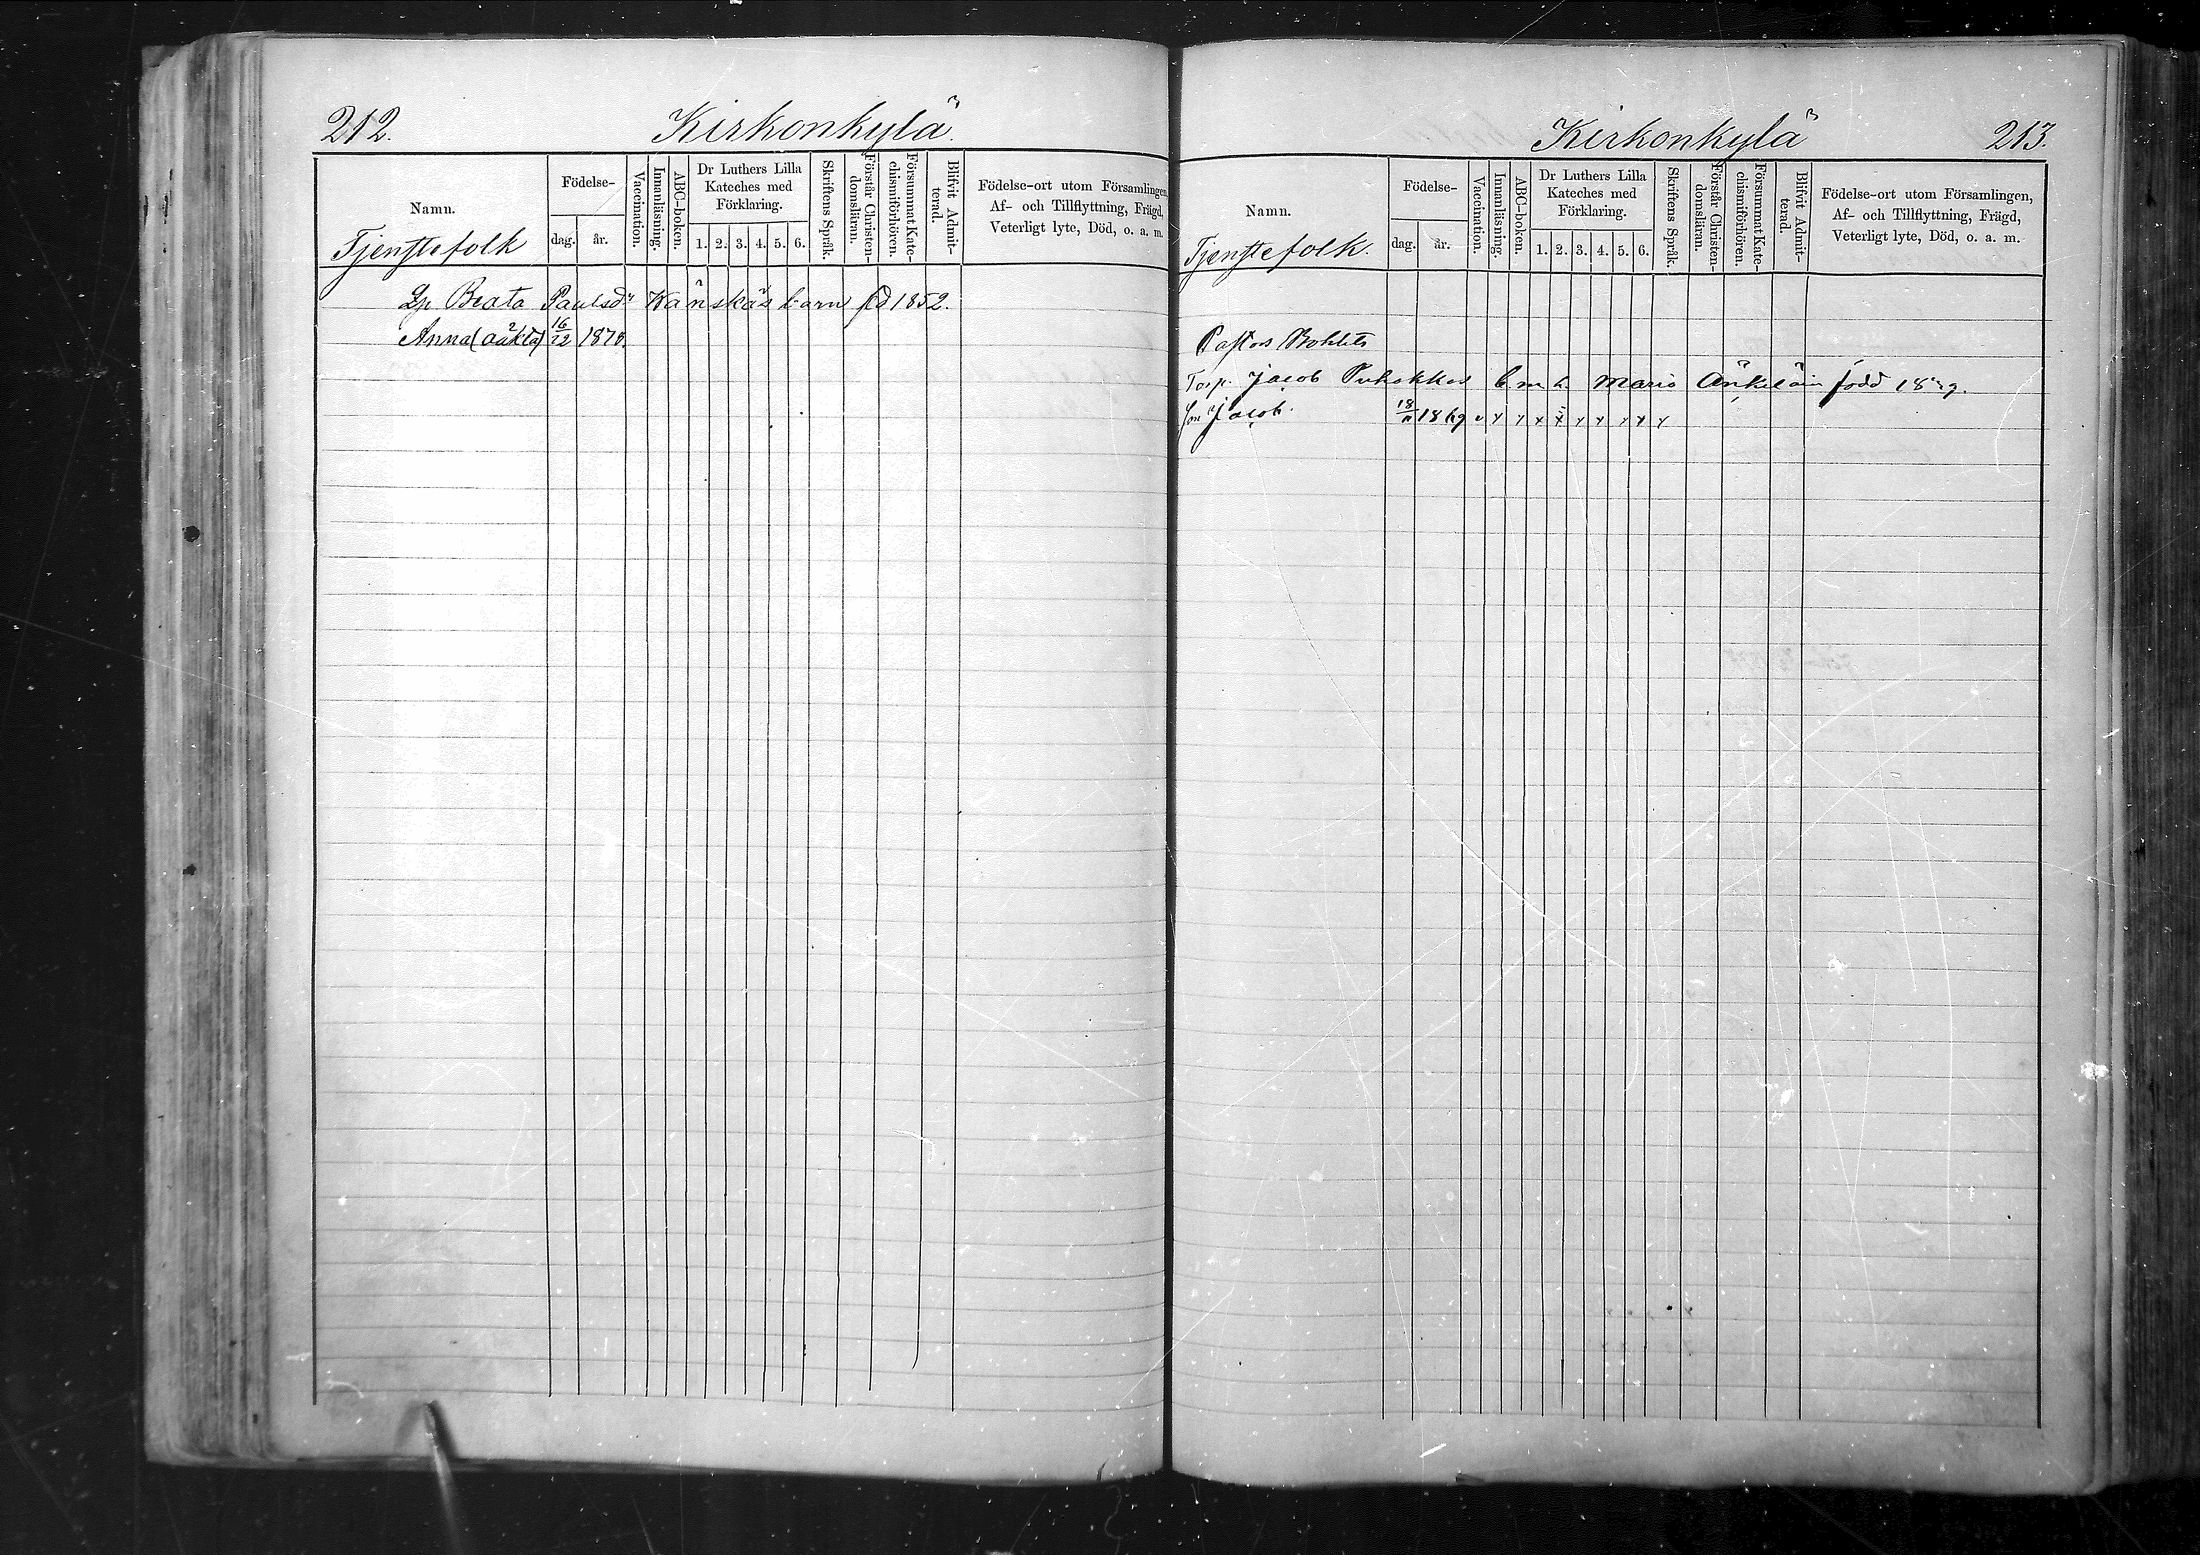 212.
Kirkonkylä.
Namn.
Tjenstefolk
Födelse-
dag.
år.
Vaccination.
Innanläsning.
ABC-boken.
Dr Luthers Lilla
Kateches med
Förklaring.
1. 2. 3. 4. 5. 6.
Skriftens Språk.
Förstår Christen-
domsläran.
Försummat Kate-
chismiförhören.
Blifvit Admit-
terad.
Födelse-ort utom Församlingen,
Af- och Tillflyttning, Frägd,
Veterligt lyte, Död, o. a. m.
Lp. Beata Paulsdr Känskäs barn fd 1852.
Anna (oäkta) 16/12 1878.
Kirkonkylä
213.
Namn.
Tjenstefolk.
Födelse-
dag.
år.
Vaccination.
Innanläsning.
ABC-boken.
Dr Luthers Lilla
Kateches med
Förklaring.
1. 2. 3. 4. 5. 6.
Skriftens Språk.
Förstår Christen-
domsläran.
Försummat Kate-
chismiförhören.
Blifvit Admit-
terad.
Födelse-ort utom Församlingen,
Af- och Tillflyttning, Frägd,
Veterligt lyte, Död, o. a. m.
Pastors
Torp. Jacob b. m. h. Maria född
Son Jacob. 1869 v x x x x x x x x x